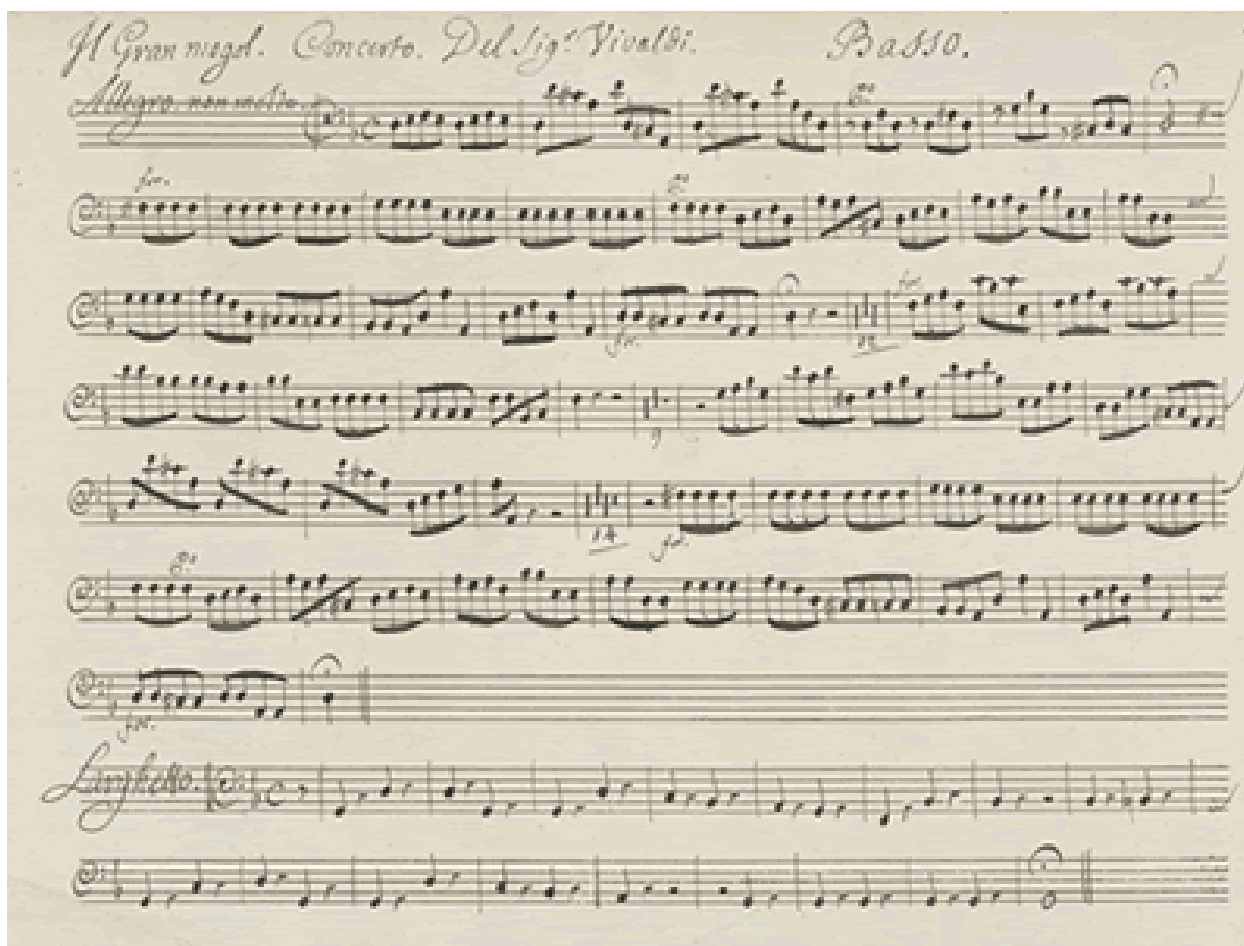 Il Gran mogol. Concerto. Del Sig.r Vivaldi. Basso.
Allegro. non molto.
C
po
for.
po
for.
for.
12
9
14
for.
po
for.
Larghetto.
C